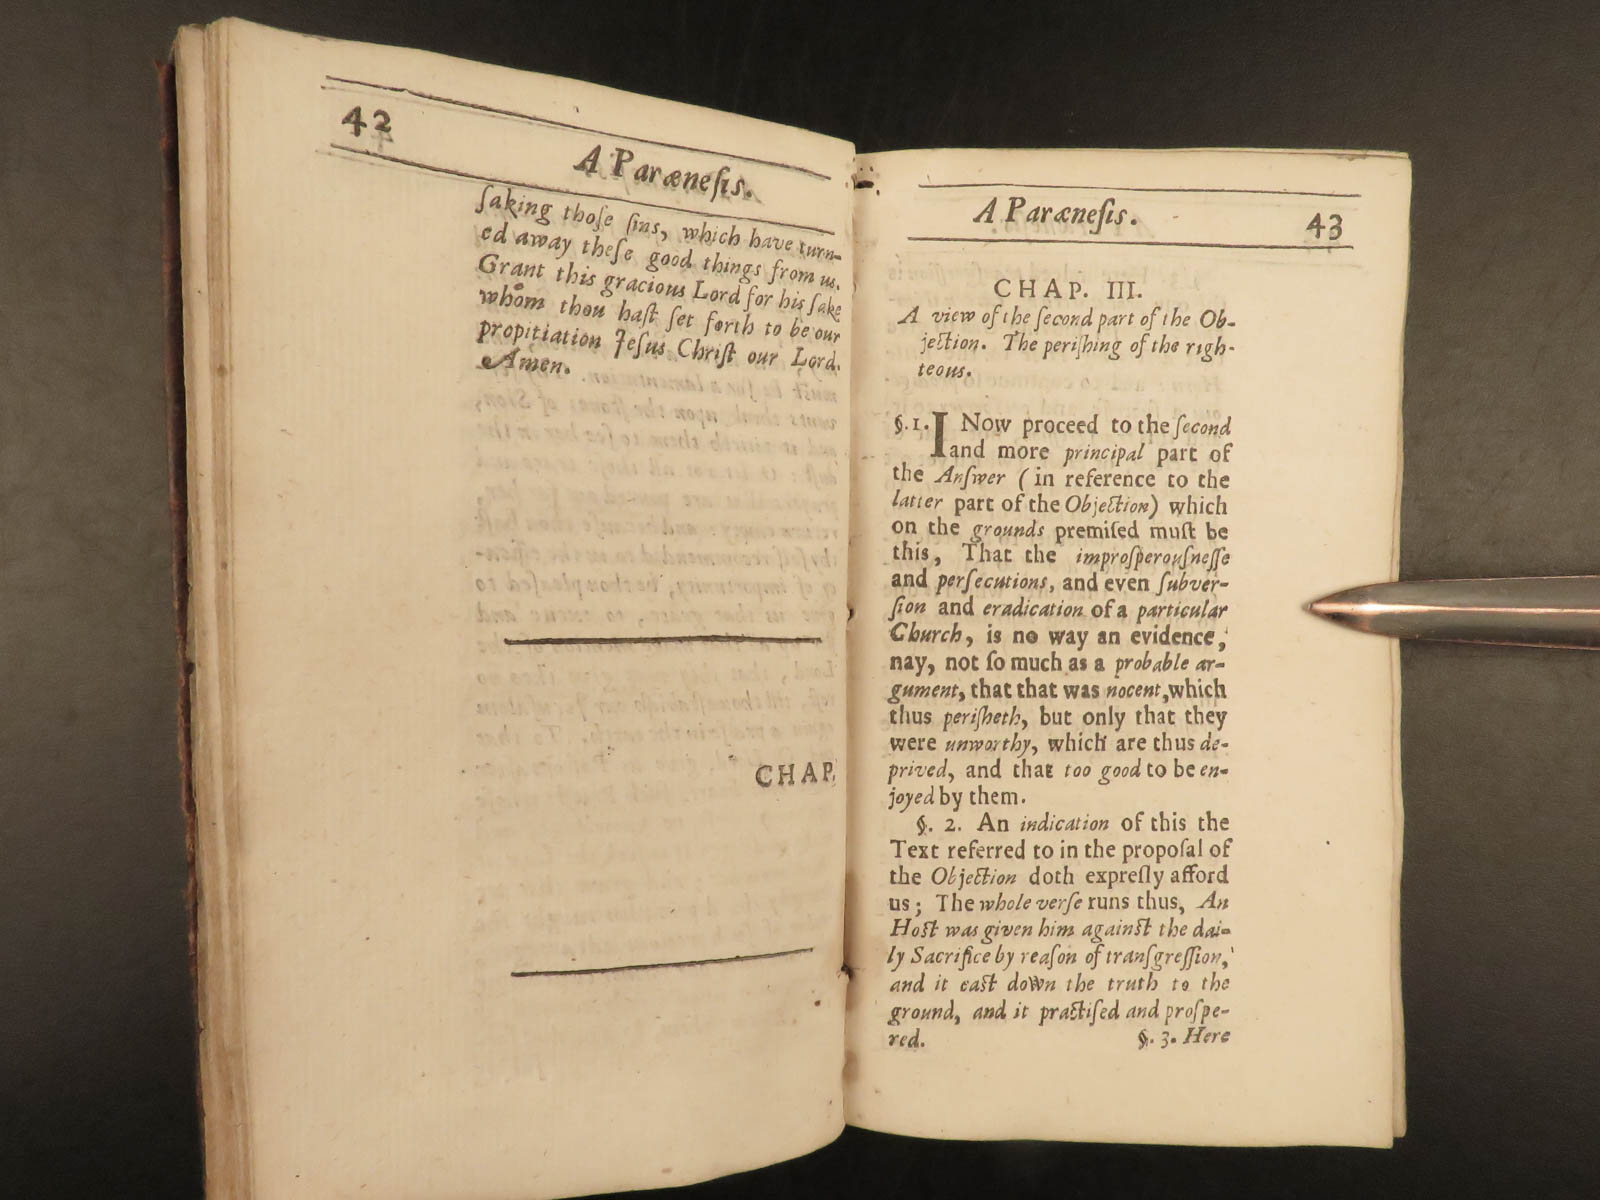 42
A Parænesis.
ſaking thoſe ſins, which have turn-
ed away theſe good things from us.
Grant this gracious Lord for his ſake
whom thou haſt ſet forth to be our
propitiation Jeſus Chriſt our Lord.
Amen.
CHAP.
A Parænesis.
43
CHAP. III.
A view of the ſecond part of the Ob-
jection. The periſhing of the righ-
teous.
§. 1. I Now proceed to the ſecond
and more principal part of
the Anſwer (in reference to the
latter part of the Objection) which
on the grounds premiſed muſt be
this, That the improſperouſneſſe
and perſecutions, and even ſubver-
ſion and eradication of a particular
Church, is no way an evidence,
nay, not ſo much as a probable ar-
gument, that that was nocent, which
thus periſheth, but only that they
were unworthy, which are thus de-
prived, and that too good to be en-
joyed by them.
§. 2. An indication of this the
Text referred to in the propoſal of
the Objection doth expreſly afford
us; The whole verſe runs thus, An
Hoſt was given him againſt the dai-
ly Sacrifice by reaſon of tranſgreſſion,
and it caſt down the truth to the
ground, and it practiſed and proſpe-
red.
§. 3. Here